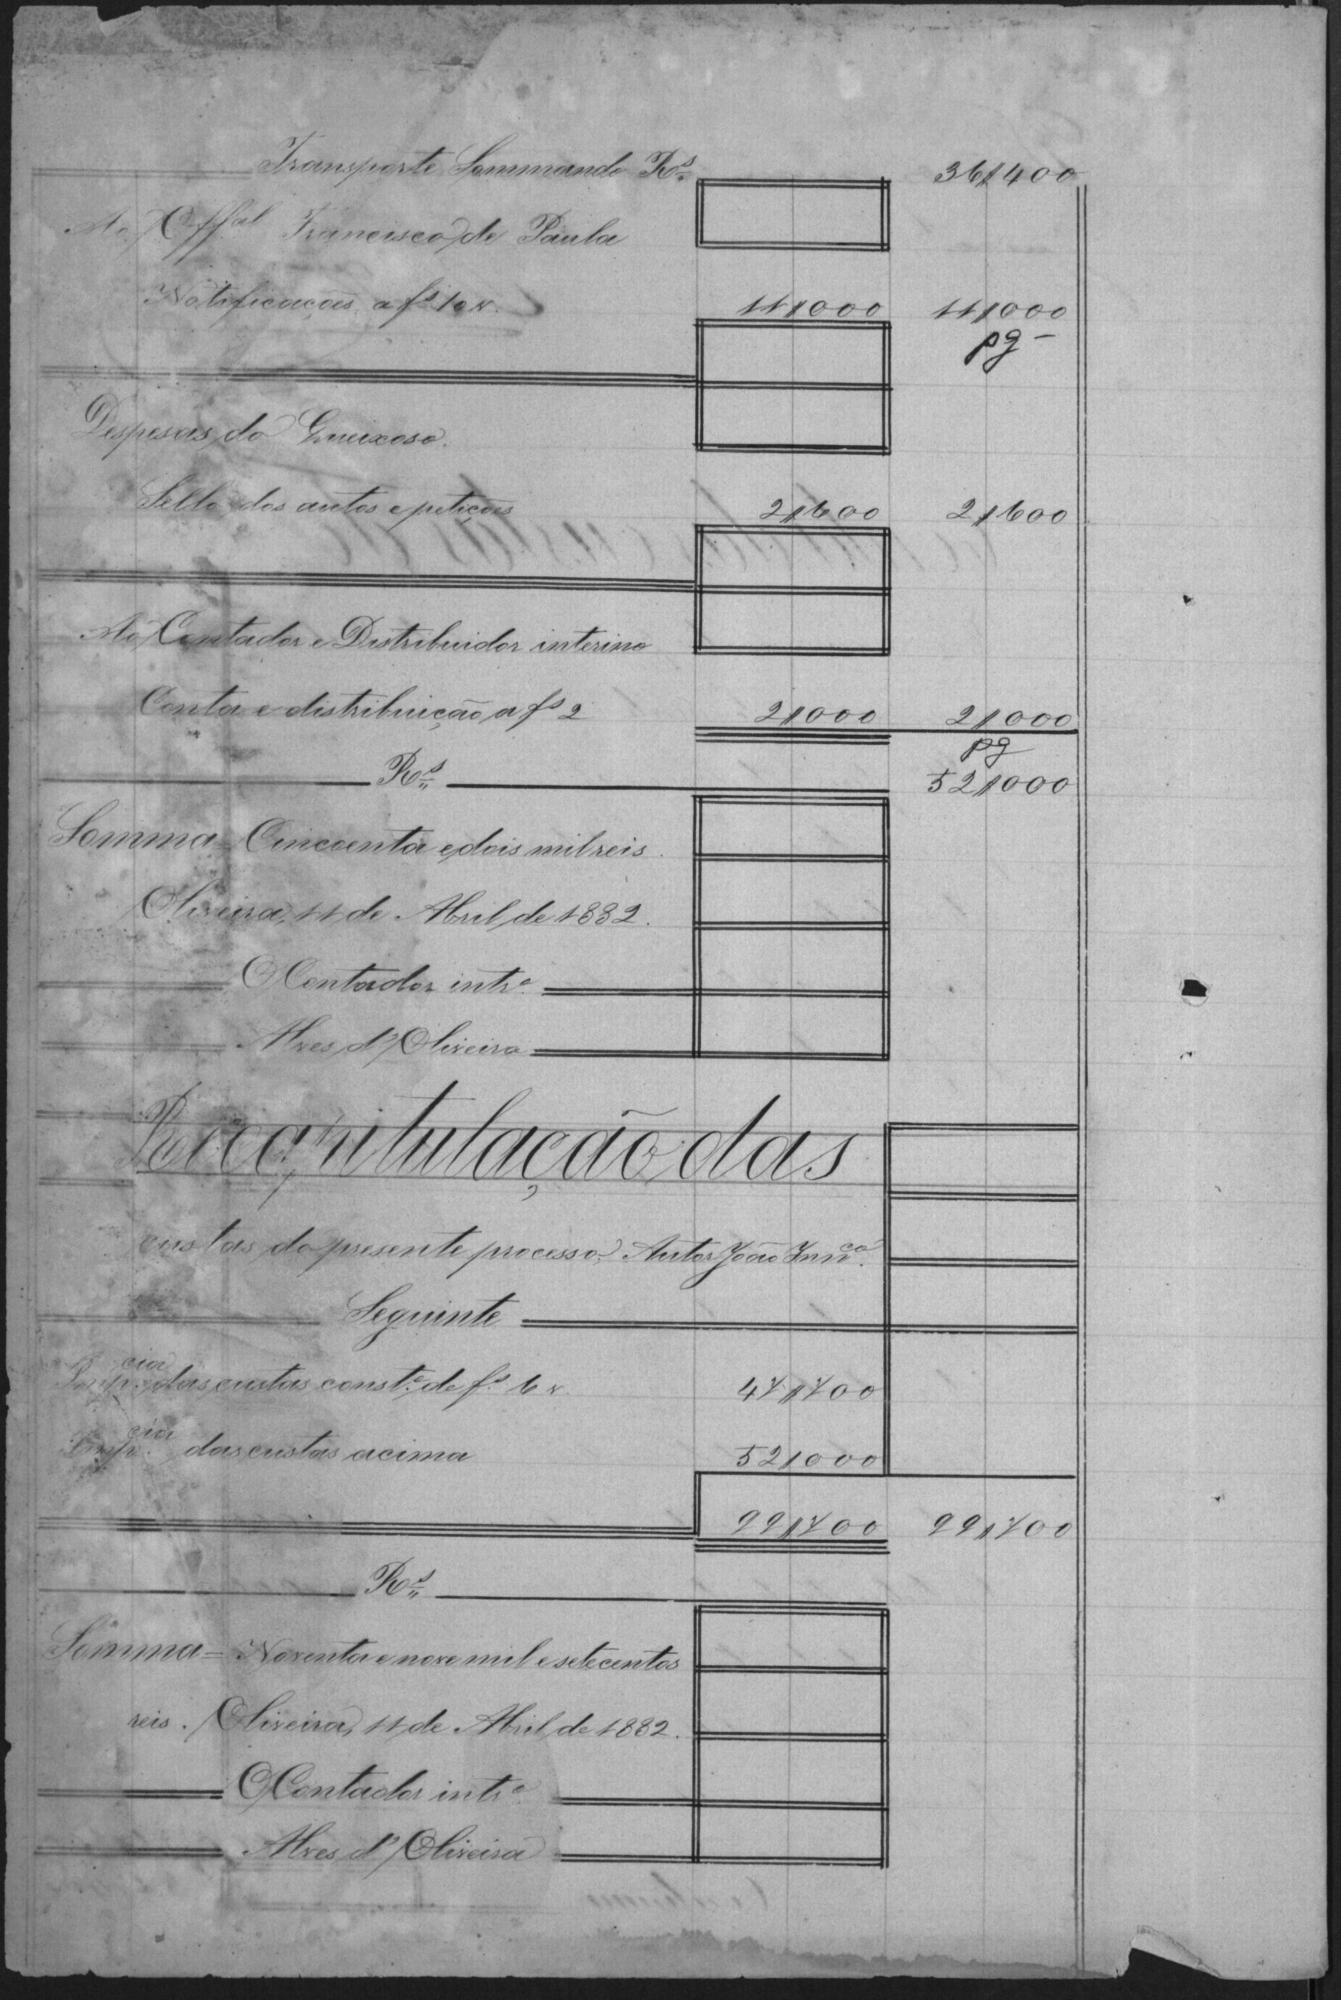 Transporte Sommando Rs. 36,400
Ao Offal Francisco de Paula
Notificacões a fs 10 v. 11,000 11,000
pg
Despesas do Queixoso.
Sello dos autos e petições 2,600 2,600
Ao Contador e Distribuidor interino
Conta e distribuição a fs 2 2,000 2,000
pg
Rs. 52,000
Somma = Cincoenta e dois mil reis.
Oliveira, 11 de Abril de 1882.
O Contador intro.
Alves d'Oliveira
Recapitulação das
custas do presente processo, Autor João Innco.
Seguinte
Impcia. das custas conste. de fs. 6 v 47,700
Impcia. das custas acima 52,000
99,700 99,700
Rs.
Somma = Noventa e nove mil e setecentos
reis. Oliveira, 11 de Abril de 1882.
O Contador intro.
Alves d'Oliveira